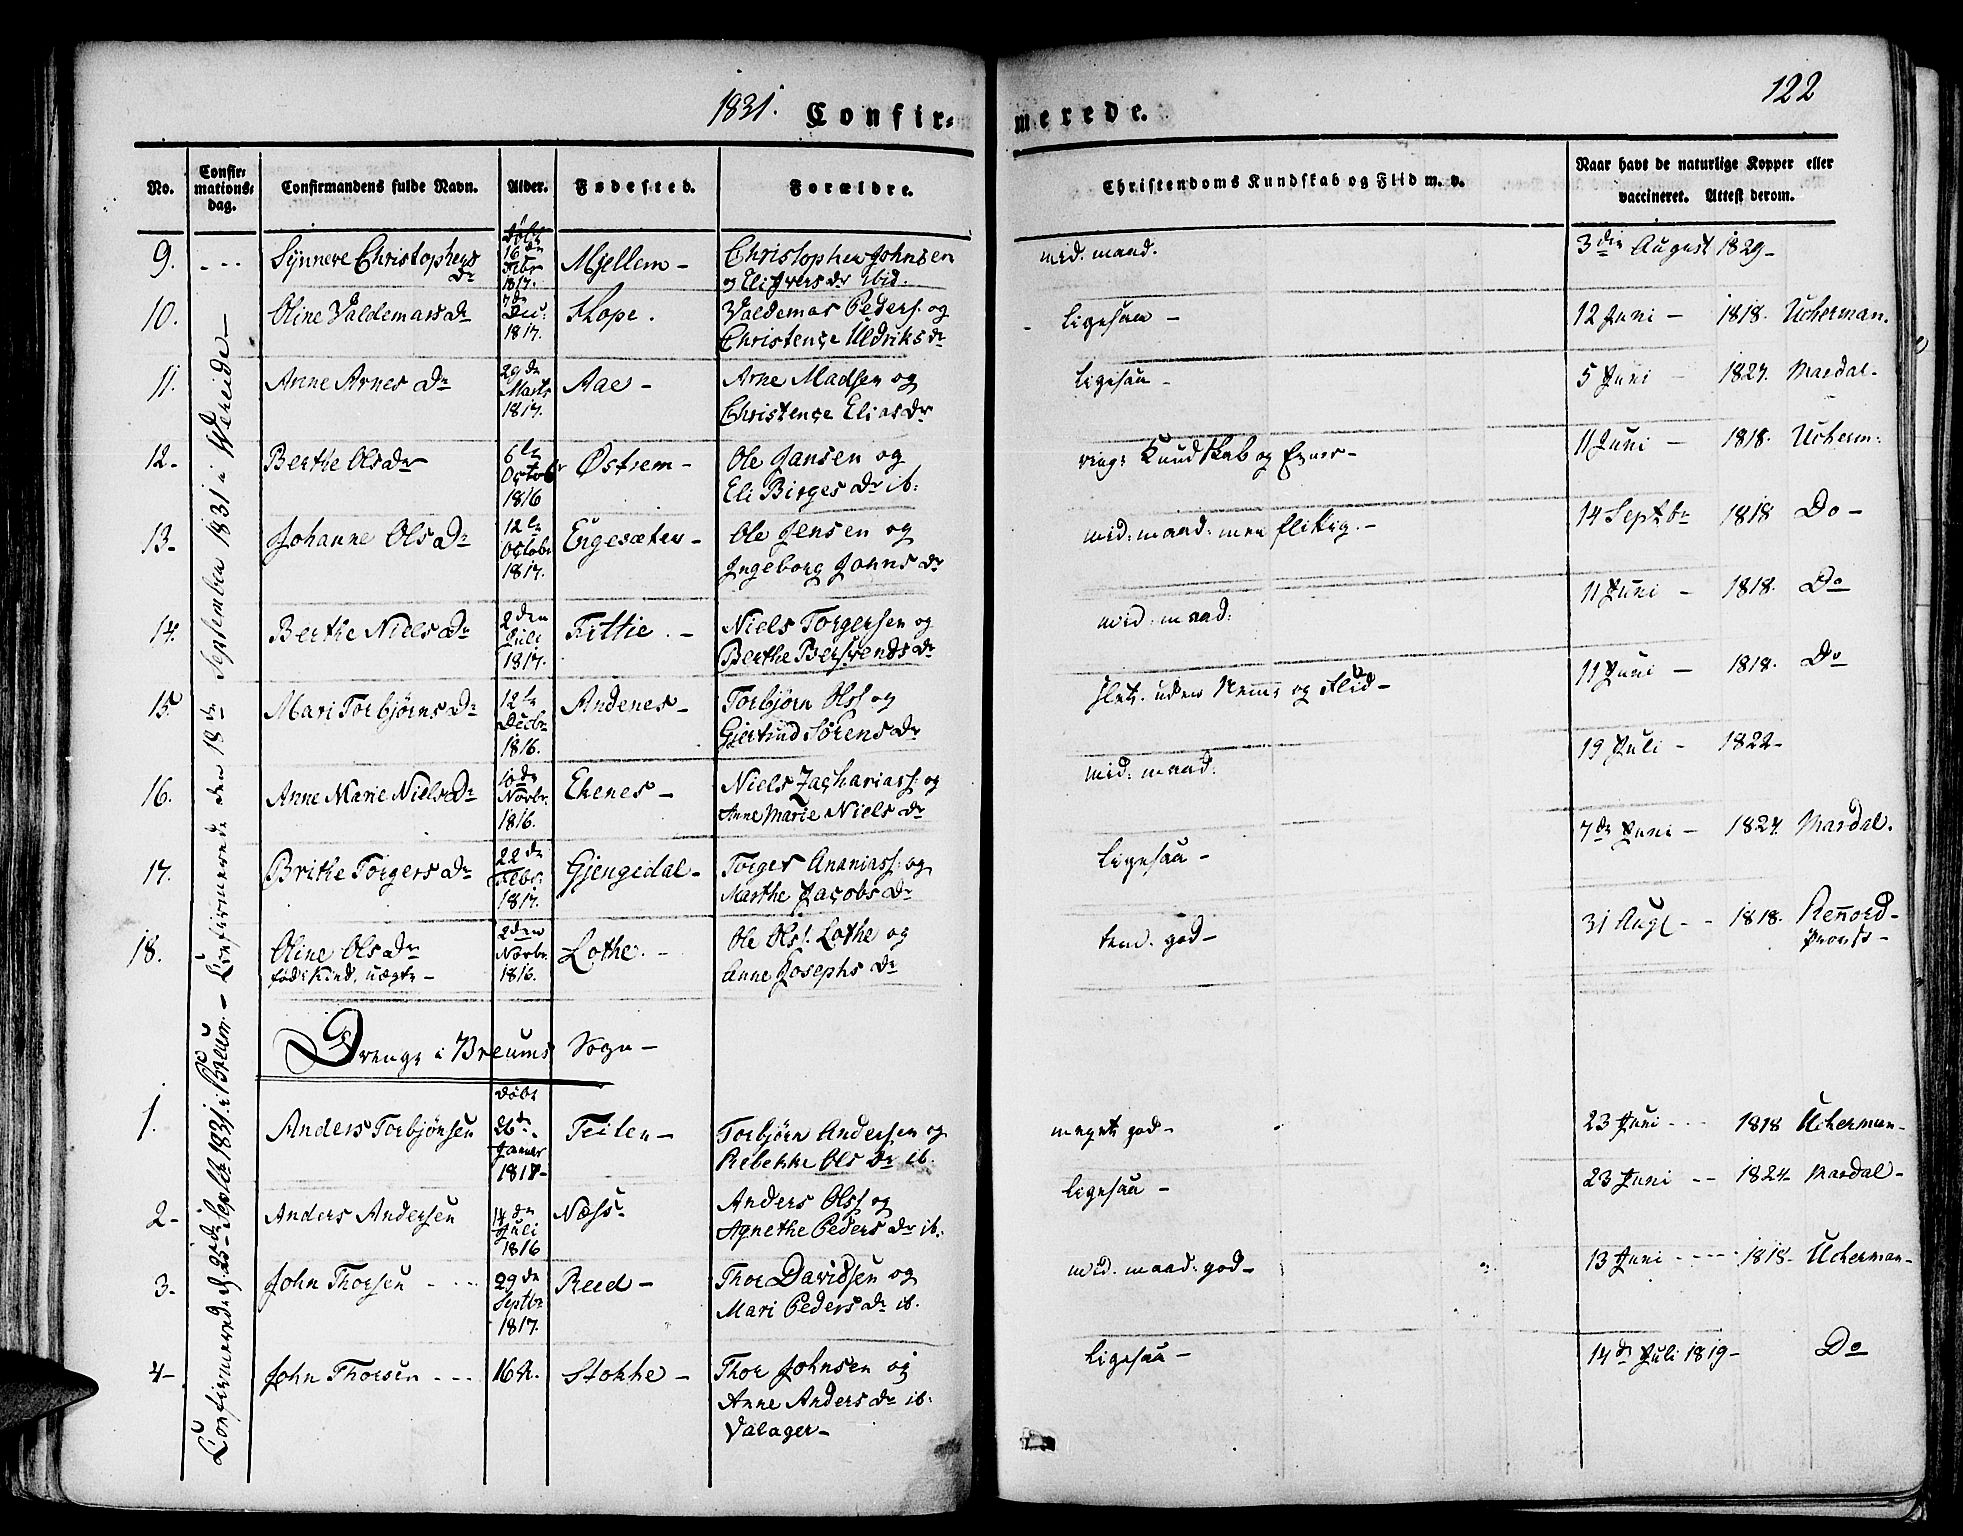 1831. Confirmerede. 122
No. Confirmationsdag. Confirmandens fulde Navn. Alder. Fødested. Forældre. Christendoms Kundskab og Flid m. v. Naar havt de naturlige Kopper eller vaccineret. Attest derom.
Confirmerede den 18de September 1831 i Wereide -
9. - - - Synneve Christophers Dr
døbt 16de Febr 1817.
Mjellem -
Christopher Johnsen
og Eli Ivers Dr ibid.
mid. maad.
3die August 1829 -
10. Oline Valdemars Dr
7de Dec. 1817.
Hope.
Valdemar Peders. og
Christence Uldriks Dr
ligesaa -
12 Juni - 1818. Ucherman.
11. Anne Arnes Dr
29de Marts 1817.
Aae -
Arne Madsen og
Christence Elias Dr
ligesaa -
5 Juni - 1827. Mardal.
12. Berthe Ols Dr
6te Octobr 1816
Østrem -
Ole Jansen og
Eli Birges Dr ib:
ring: Kundskab og
11 Juni - 1818. Ucherm:
13. Johanne Ols Dr
12te Octobr 1817.
Eigesæter -
Ole Jensen og
Ingeborg Johns Dr
mid: maad: men flitig. -
14 Septbr 1818 Do -
14. Berthe Niels Dr
2den Juli 1817.
Fittie. -
Niels Torgersen og
Berthe Dr
mid: maad:
11 Juni - 1818. Do
15. Mari Torbjørns Dr
12te Decbr 1816.
Andenes -
Torbjørn Olss og
Gjertrud Sørens Dr
slet. uden Nemme og Flid -
11 Juni - 1818. Do
16. Anne Marie Niels Dr
10de Novbr. 1816.
Ekenes -
Niels Zachariass: og
Anne Marie Niels Dr
mid: maad:
19 Juli - 1822 -
17. Brithe Torgers Dr
22de Febr. 1817.
Gjengedal -
Torger Ananiass: og
Marthe Jacobs Dr
ligesaa -
7de Juni - 1827. Mardal.
18. Oline Ols Dr
uægte -
2den Novbr. 1816.
Lothe. -
Ole Olss. Lothe og
Anne Josephs Dr
tem. god -
31 Aug - - 1818. Rennord -
Provst -
Drenge i Breums Sogn -
Confirmerede d. 25de Septbr 1831. i Breum. -
1. Anders Torbjønsen
døbt 26de Januar 1817 -
Feiten -
Torbjørn Andersen og
Rebekke Ols Dr ib.
meget god -
23 Juni - - - 1818 Ucherman -
2 - Anders Andersen
14de Juli 1816
Næss -
Anders Olss og
Agnethe Peders Dr ib.
ligesaa -
23 Juni - - 1824 Mardal -
3 - John Thorsen - - -
29de Septbr 1817.
Reed -
Thor Davidsen og
Mari Peders Dr ib.
mid. maad: god -
13 Juni - - - - 1818 - Ucherman -
4 - John Thorsen - - -
16 A.
Stokke -
Thor Johnsen og
Anne Anders Dr ib:
Valager -
ligesaa -
14de Juli 1819 - Do